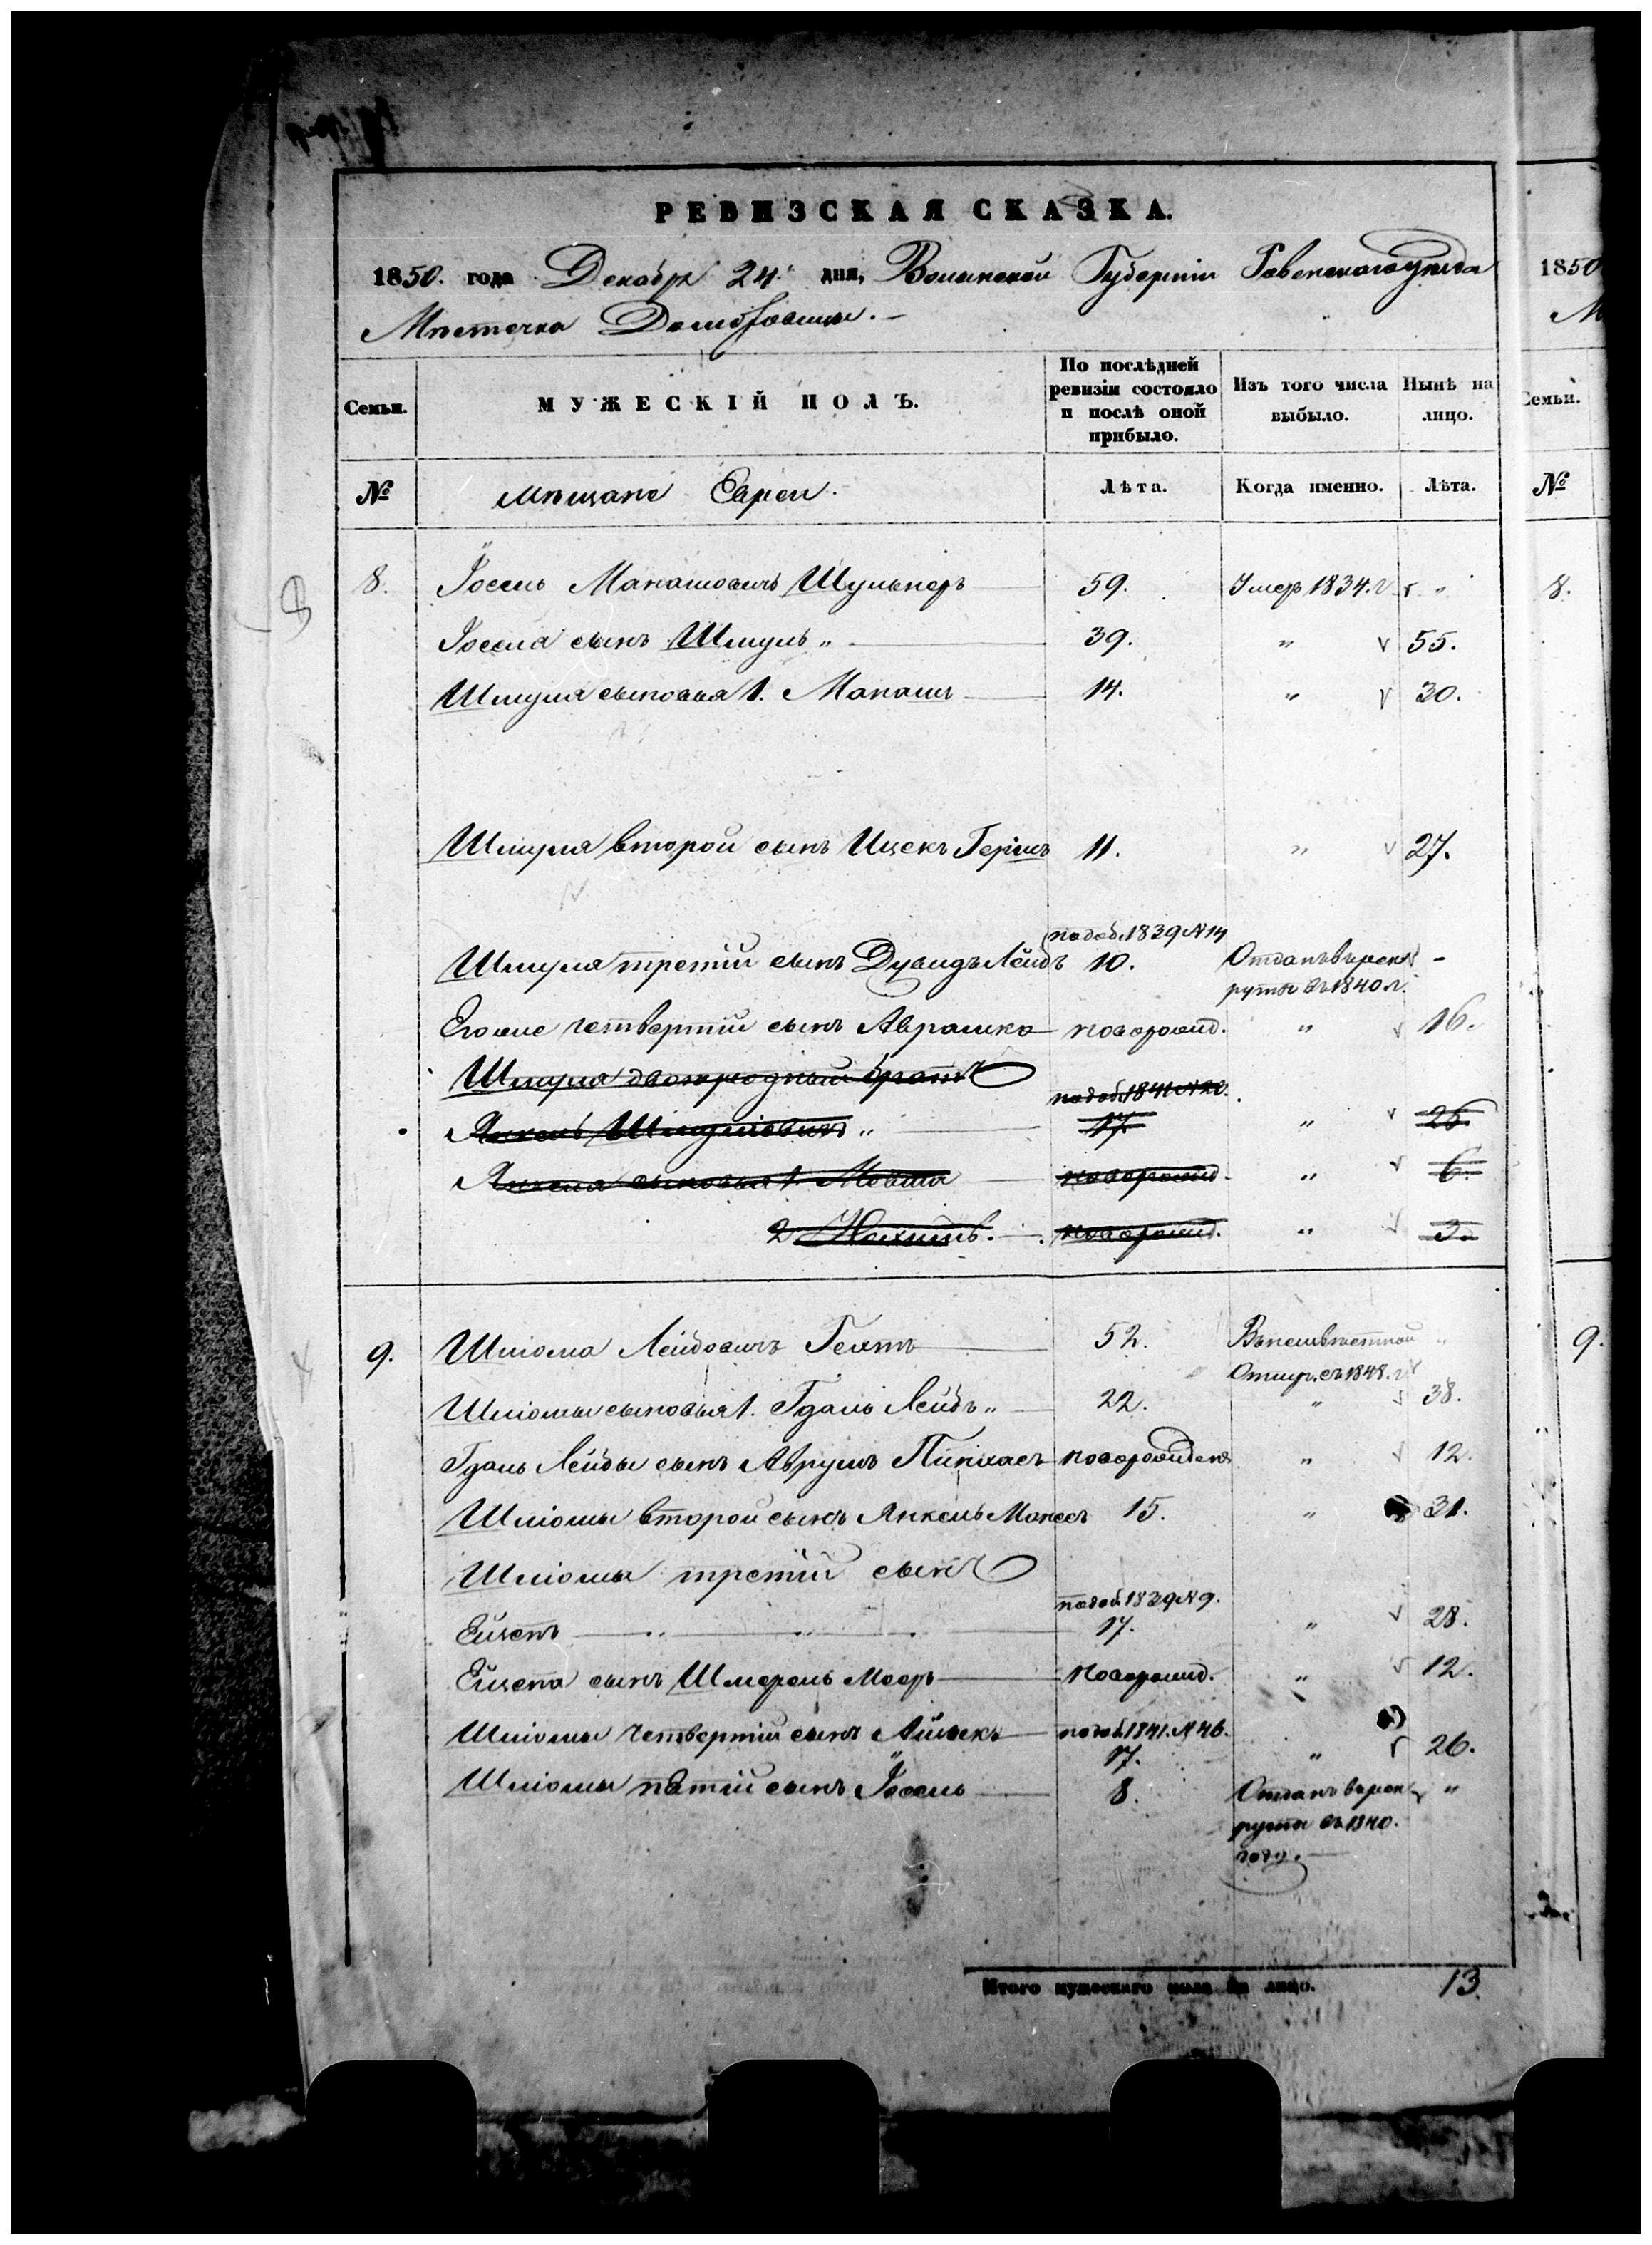 РЕВИЗСКАЯ СКАЗКА.
1850. года Декабря 24. дня, Волынской Губерніи Ровенскаго уѣзда
Мѣстечка Домбровицы.
Семьи.
МУЖЕСКІЙ ПОЛЪ.
По послѣдней ревизіи состояло и послѣ оной прибыло.
Изъ того числа выбыло.
Нынѣ на лицо.
№
мѣщане Евреи.
Лѣта.
Когда именно.
Лѣта.
8. Іосель Манашовичъ Шульнеръ 59. Умеръ 1834. г. "
Іосела сынъ Шмуль " 39. " 55.
Шмуля сыновья 1. Манашъ 14. " 30.
Шмуля второй сынъ Ицекъ Гершъ 11. " 27.
подоб. 1839 N 14
Шмуля третій сынъ Дувидъ Лейбъ 10. Отданъ въ рек- -
руты въ 1840 г.
Его же четвертій сынъ Аврамко новорожд. " 16.
Шмуля двоюродный братъ
подоб. 1841 N 20.
Янкель Шмулiовичъ " 17. " 26.
Янкеля сыновья 1. Мовша новорожд. " 6.
2 Нахимъ. новорожд. " 3
9. Шліома Лейбовичъ Гехтъ 52. Въ неизвѣстной "
Отлуч. съ 1848. г.
Шліомы сыновья 1. Гдаль Лейбъ " 22. " 38.
Гдаль Лейбы сынъ Аврумъ Пинхасъ новорожденъ " 12.
Шліомы второй сынъ Янкель Манесъ 15. " 31.
Шліомы третій сынъ
подоб. 1839 N 9.
Ейзепъ 17. " 28.
Ейзепа сынъ Шмерель Мееръ новорожд. " 12.
Шліомы четвертій сынъ Айзыкъ подоб. 1841. N 46.
17. " 26.
Шліомы пятій сынъ Іосель 8. Отданъ въ рек- "
руты въ 1840.
году.
Итого мужескаго пола на лицо. 13.
1850
Семьи.
№
8.
9.